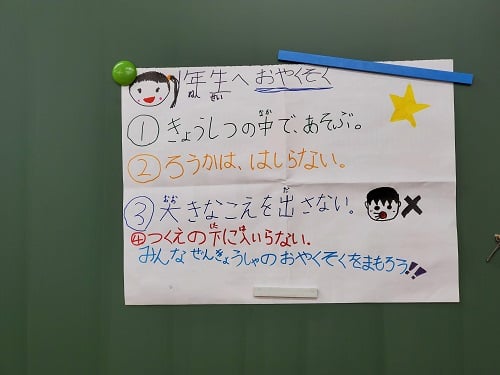 1年生へ おやくそく
①きょうしつの中で、あそぶ。
②ろうかは、はしらない。
③大きなこえを出さない。
④つくえの下に入いらない。
みんなせんきょうしゃのおやくそくをまもろう!!